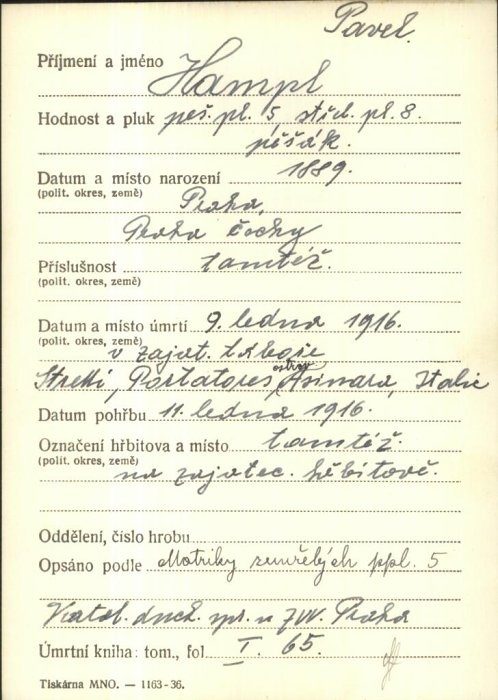 Pavel.
Příjmení a jméno Hampl
Hodnost a pluk peš. pl. 5, stříd. pl. 8.
pěšák.
Datum a místo narození 1889.
(polit. okres, země) Praha,
Praha Čechy
Příslušnost tamtéž.
(polit. okres, země)
Datum a místo úmrtí 9. ledna 1916.
(polit. okres, země) v zajat. táboře
ostrov
Stretti, Portatores, Asinara, Italie
Datum pohřbu 11. ledna 1916.
Označení hřbitova a místo tamtéž.
(polit. okres, země) na zajatec. hřbitově.
Oddělení, číslo hrobu
Opsáno podle Matriky zemřelých ppl. 5
Katol. duch. spr. u ZVV. Praha
Úmrtní kniha: tom., fol. I. 65.
Tiskárna MNO. — 1163-36.